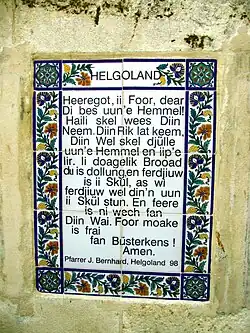 HELGOLAND
Heeregot, ii Foor, dear
Di bes uun'e Hemmel!
Haili skel wees Diin
Neem. Diin Rik lat keem.
Diin Wel skel djülle
uun'e Hemmel en iip'e
lir. Ii doagelik Brooad
du is dollung en ferdjiuw
is ii Skül, as wi
ferdjiuw wel din'n uun
ii Skül stun. En feere
is ni wech fan
Diin Wai. Foor moake
is frai
fan Büsterkens !
Amen.
Pfarrer J. Bernhard, Helgoland 98